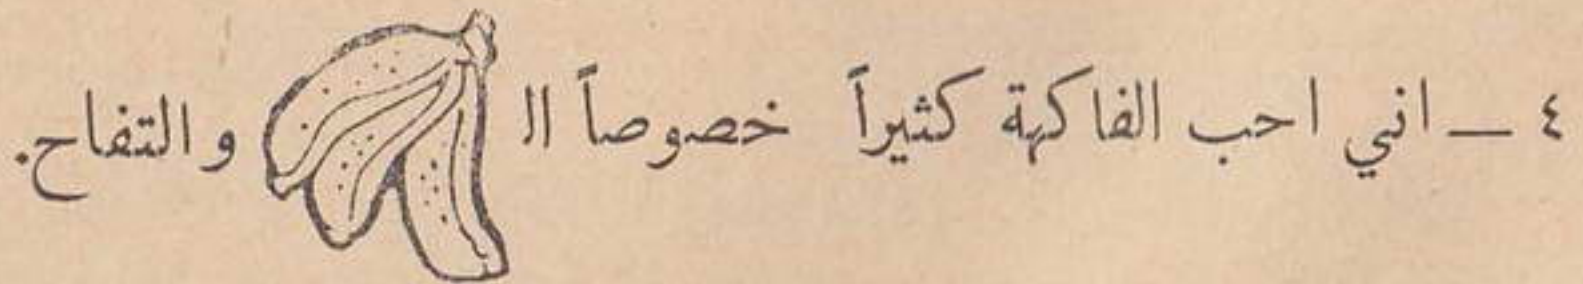 ٤ — اني احب الفاكهة كثيراً خصوصاً الـ و التفاح.